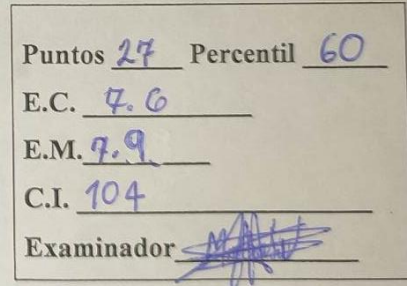 Puntos 27 Percentil 60
E.C. 7.6
E.M. 7.9
C.I. 104
Examinador